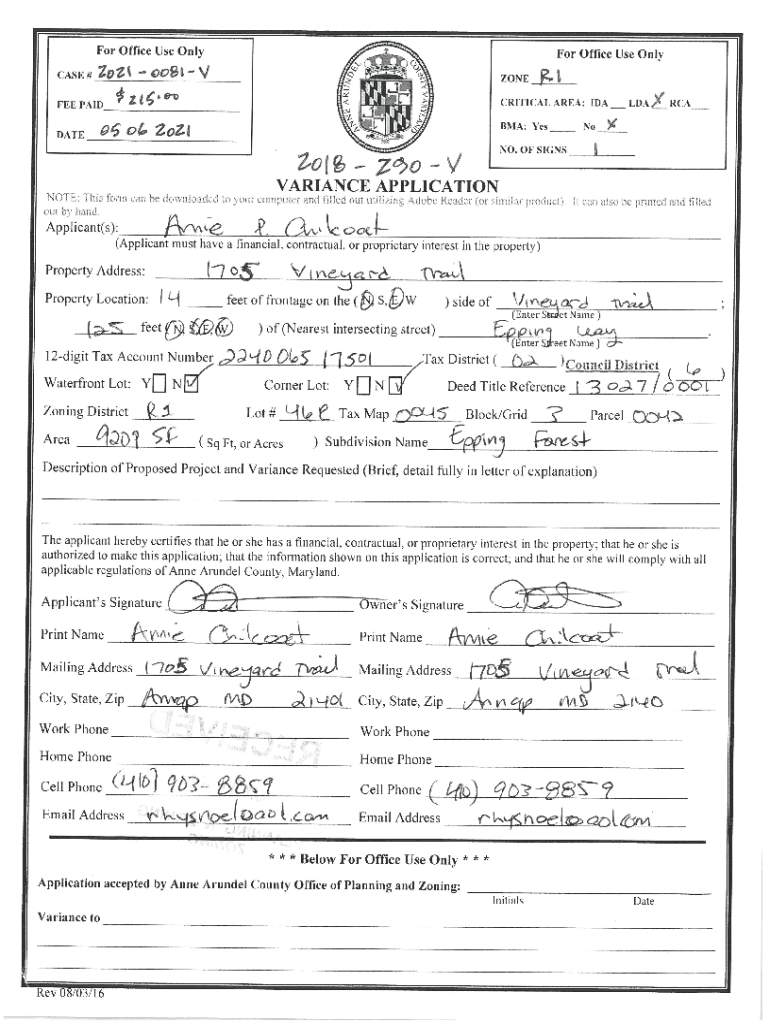 For Office Use Only
CASE # 2021-0081-V
FEE PAID $215.00
DATE 05 06 2021
ANNE ARUNDEL COUNTY, MARYLAND
For Office Use Only
ZONE R1
CRITICAL AREA: IDA ___ LDA X RCA ___
BMA: Yes ___ No X
NO. OF SIGNS 1
2018-290-V
VARIANCE APPLICATION
NOTE: This form can be downloaded to your computer and filled out utilizing Adobe Reader (or similar product). It can also be printed and filled
out by hand.
Applicant(s): Amie P. Chilcoat
(Applicant must have a financial, contractual, or proprietary interest in the property)
Property Address: 1705 Vineyard Trail
Property Location: 14 feet of frontage on the (N S, E W ) side of Vineyard Trail ;
(Enter Street Name )
125 feet (N S, E W ) of (Nearest intersecting street) Epping Way .
(Enter Street Name )
12-digit Tax Account Number 224006517501 Tax District ( 02 ) Council District ( 6 )
Waterfront Lot: Y N ✓ Corner Lot: Y N ✓ Deed Title Reference 13027/0001
Zoning District R1 Lot # 46R Tax Map 0045 Block/Grid 3 Parcel 0042
Area 9209 SF ( Sq Ft, or Acres ) Subdivision Name Epping Forest
Description of Proposed Project and Variance Requested (Brief, detail fully in letter of explanation)
The applicant hereby certifies that he or she has a financial, contractual, or proprietary interest in the property; that he or she is
authorized to make this application; that the information shown on this application is correct; and that he or she will comply with all
applicable regulations of Anne Arundel County, Maryland.
Applicant's Signature Owner's Signature
Print Name Amie Chilcoat Print Name Amie Chilcoat
Mailing Address 1705 Vineyard Trail Mailing Address 1705 Vineyard Trail
City, State, Zip Annap MD 21401 City, State, Zip Annap MD 2140
Work Phone Work Phone
RECEIVED
Home Phone Home Phone
Cell Phone (410) 903-8859 Cell Phone (410) 903-8859
Email Address rhysnoel@aol.com Email Address rhysnoel@aol.com
* * * Below For Office Use Only * * *
Application accepted by Anne Arundel County Office of Planning and Zoning:
Initials Date
Variance to
Rev 08/03/16